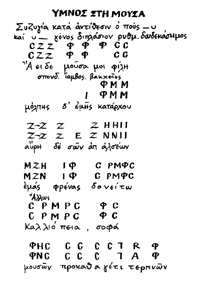 ΥΜΝΟΣ ΣΤΗ ΜΟΥΣΑ
Συζυγία κατά ἀντίθεσιν ὁ πούς – υ
καί υ – χένος διπλάσιον ρυθμ. δωδεκάσημος
C Z Z Φ Φ Φ C C
Ἄειδε μοῦσα μοι φίλη
σπονδ. ἴαμβος, βακχεῖος
Φ Μ Μ
Ι Φ Μ Μ
μολπῆς δ' ἐμῆς κατάρχου
Z Z Z Z H H I I
Z Z Z E Z N N I I
αὔρη δέ σῶν ἀπ ἀλσέων
M Z H I Φ C P M Φ C
M Z N I Φ C P M Φ C
ἐμάς φρένας δονείτω
Ἄλλως
C P M P C Φ C
C P M P C Φ C
Καλλιόπεια, σοφά
Φ H C C C C R Φ
Φ N C C C C Φ
μουσῶν προκαθαγέτι τερπνῶν